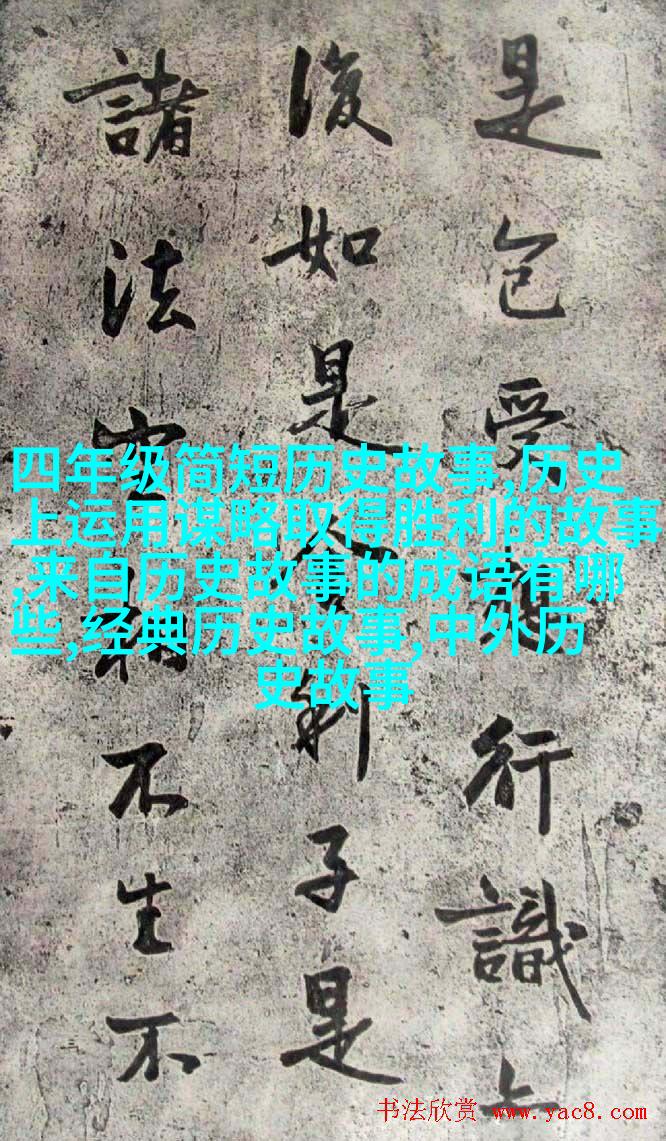 是色受行識
復如是利子是
諸法空相不生不
四年级简短历史故事,历史
上运用谋略取得胜利的故事
,来自历史故事的成语有哪
些,经典历史故事,中外历
史故事
书法欣赏 www.yac8.com